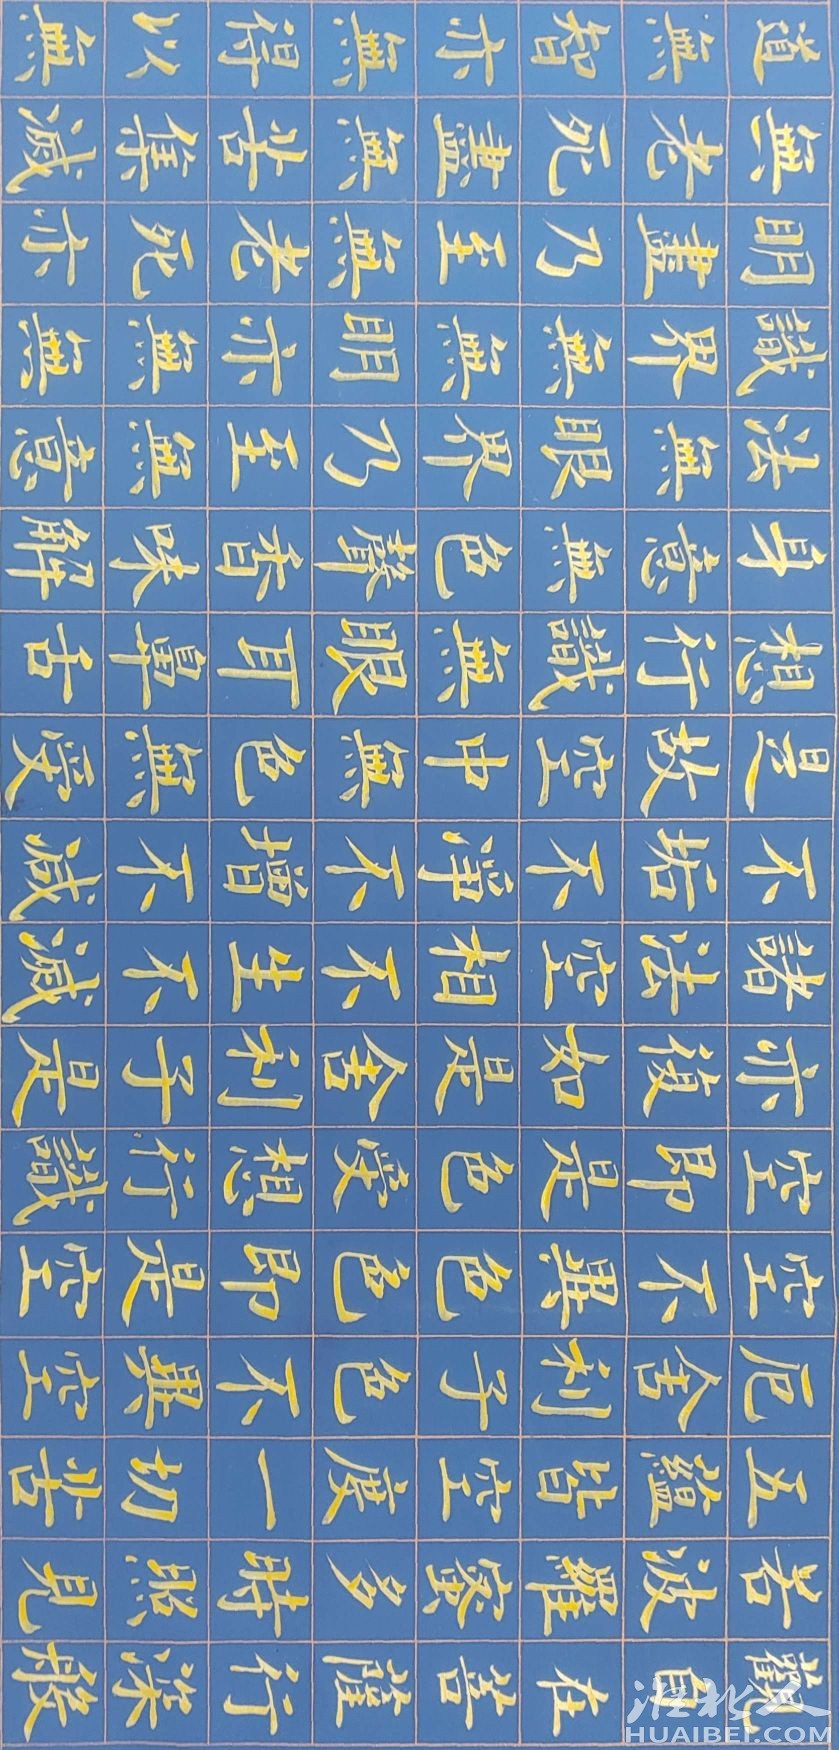 觀自在菩薩行深般
若波羅蜜多時照見
五蘊皆空度一切苦
厄舍利子色不異空
空不異色色即是空
空即是色受想行識
亦復如是舍利子是
諸法空相不生不滅
不垢不淨不增不減
是故空中無色無受
想行識無眼耳鼻舌
身意無色聲香味解
法無眼界乃至無意
識界無無明亦無無
明盡乃至無老死亦
無老死盡無苦集滅
道無智亦無得以無
淮北人
HUAIBEI.COM